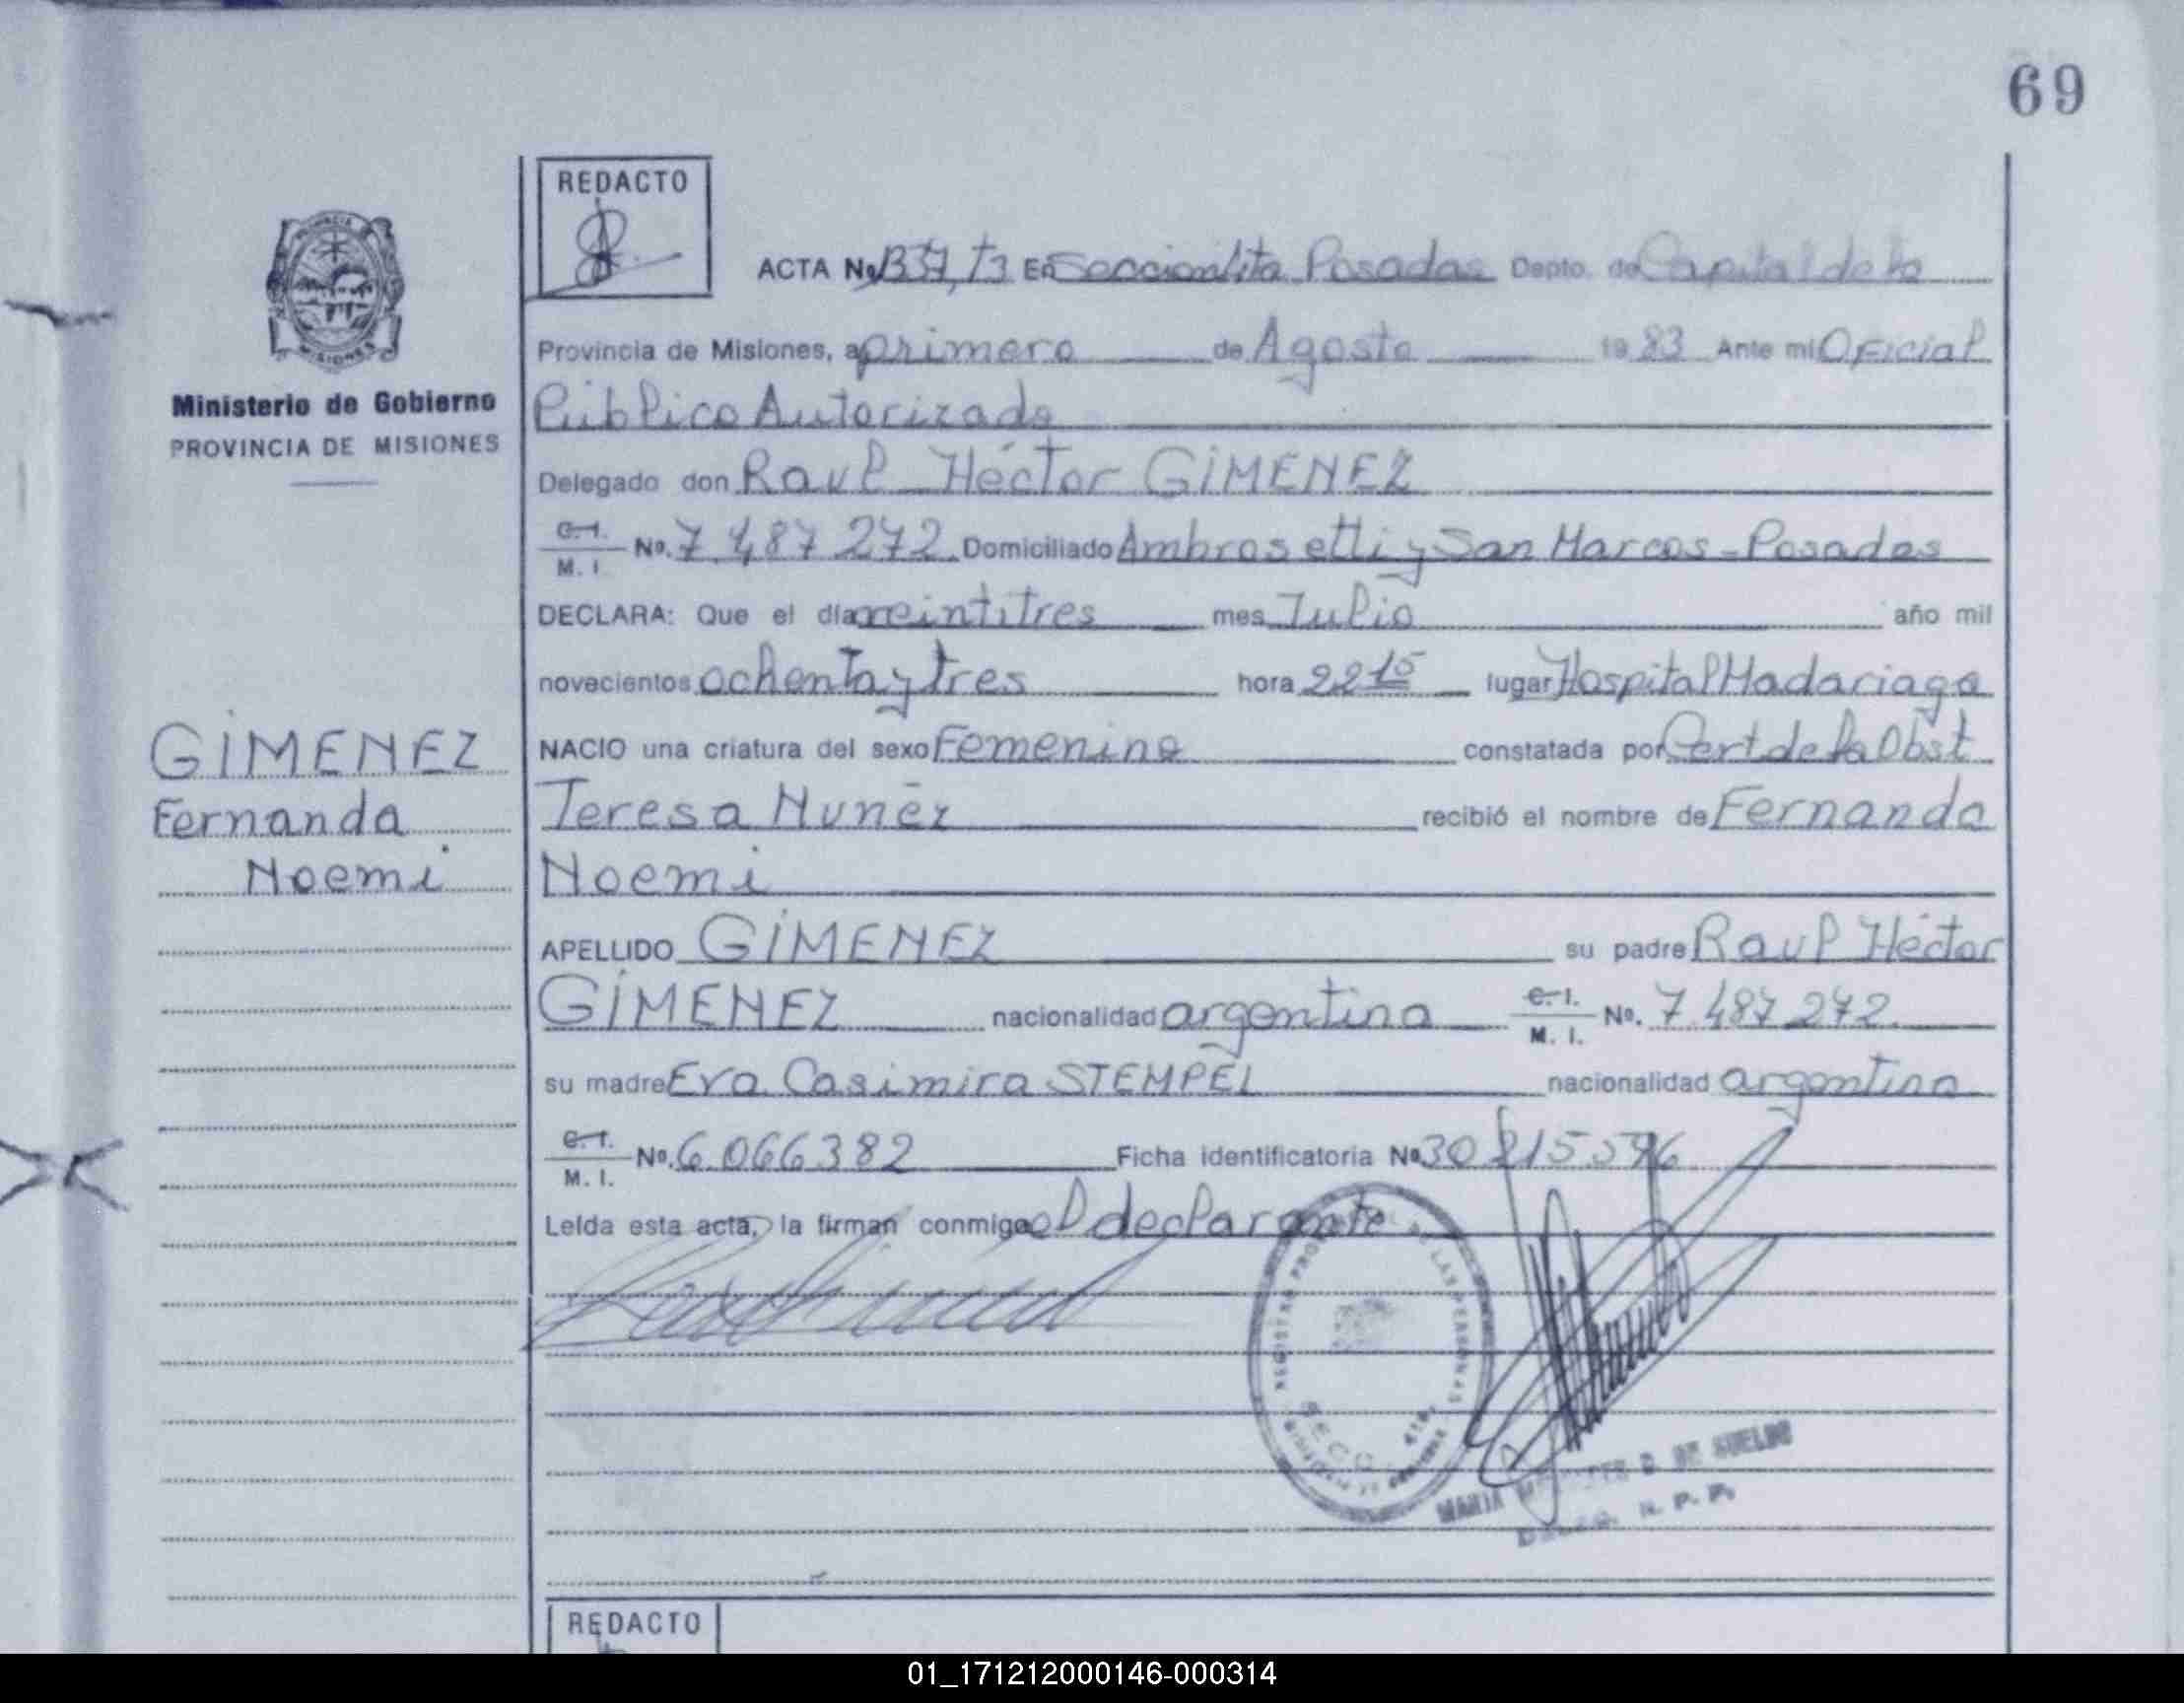 69
REDACTO
ACTA No. 1337, T3 En Seccional 1ta Posadas Depto. de Capital de la
Provincia de Misiones, a primero de Agosto 1983 Ante mi Oficial
Ministerio de Gobierno
PROVINCIA DE MISIONES
Público Autorizado
Delegado don Raul Héctor GIMENEZ
C. I. M. I. No. 7.487.272. Domiciliado Ambrosetti y San Marcos - Posadas
DECLARA: Que el día veintitres mes Julio año mil
novecientos ochenta y tres hora 22 15 lugar Hospital Madariaga
GIMENEZ
Fernanda
Noemi
NACIO una criatura del sexo Femenino constatada por Cert de la Obst
Teresa Nuñez recibió el nombre de Fernanda
Noemi
APELLIDO GIMENEZ su padre Raul Héctor
GIMENEZ nacionalidad argentina C. I. M. I. No. 7.487.272.
su madre Eva Casimira STEMPEL nacionalidad argentina
C. I. M. I. No. 6.066382 Ficha identificatoria No 30
Leída esta acta, la firman conmigo el declarante
MARIA DE SUELDO
R. P. P.
REDACTO
01_171212000146-000314